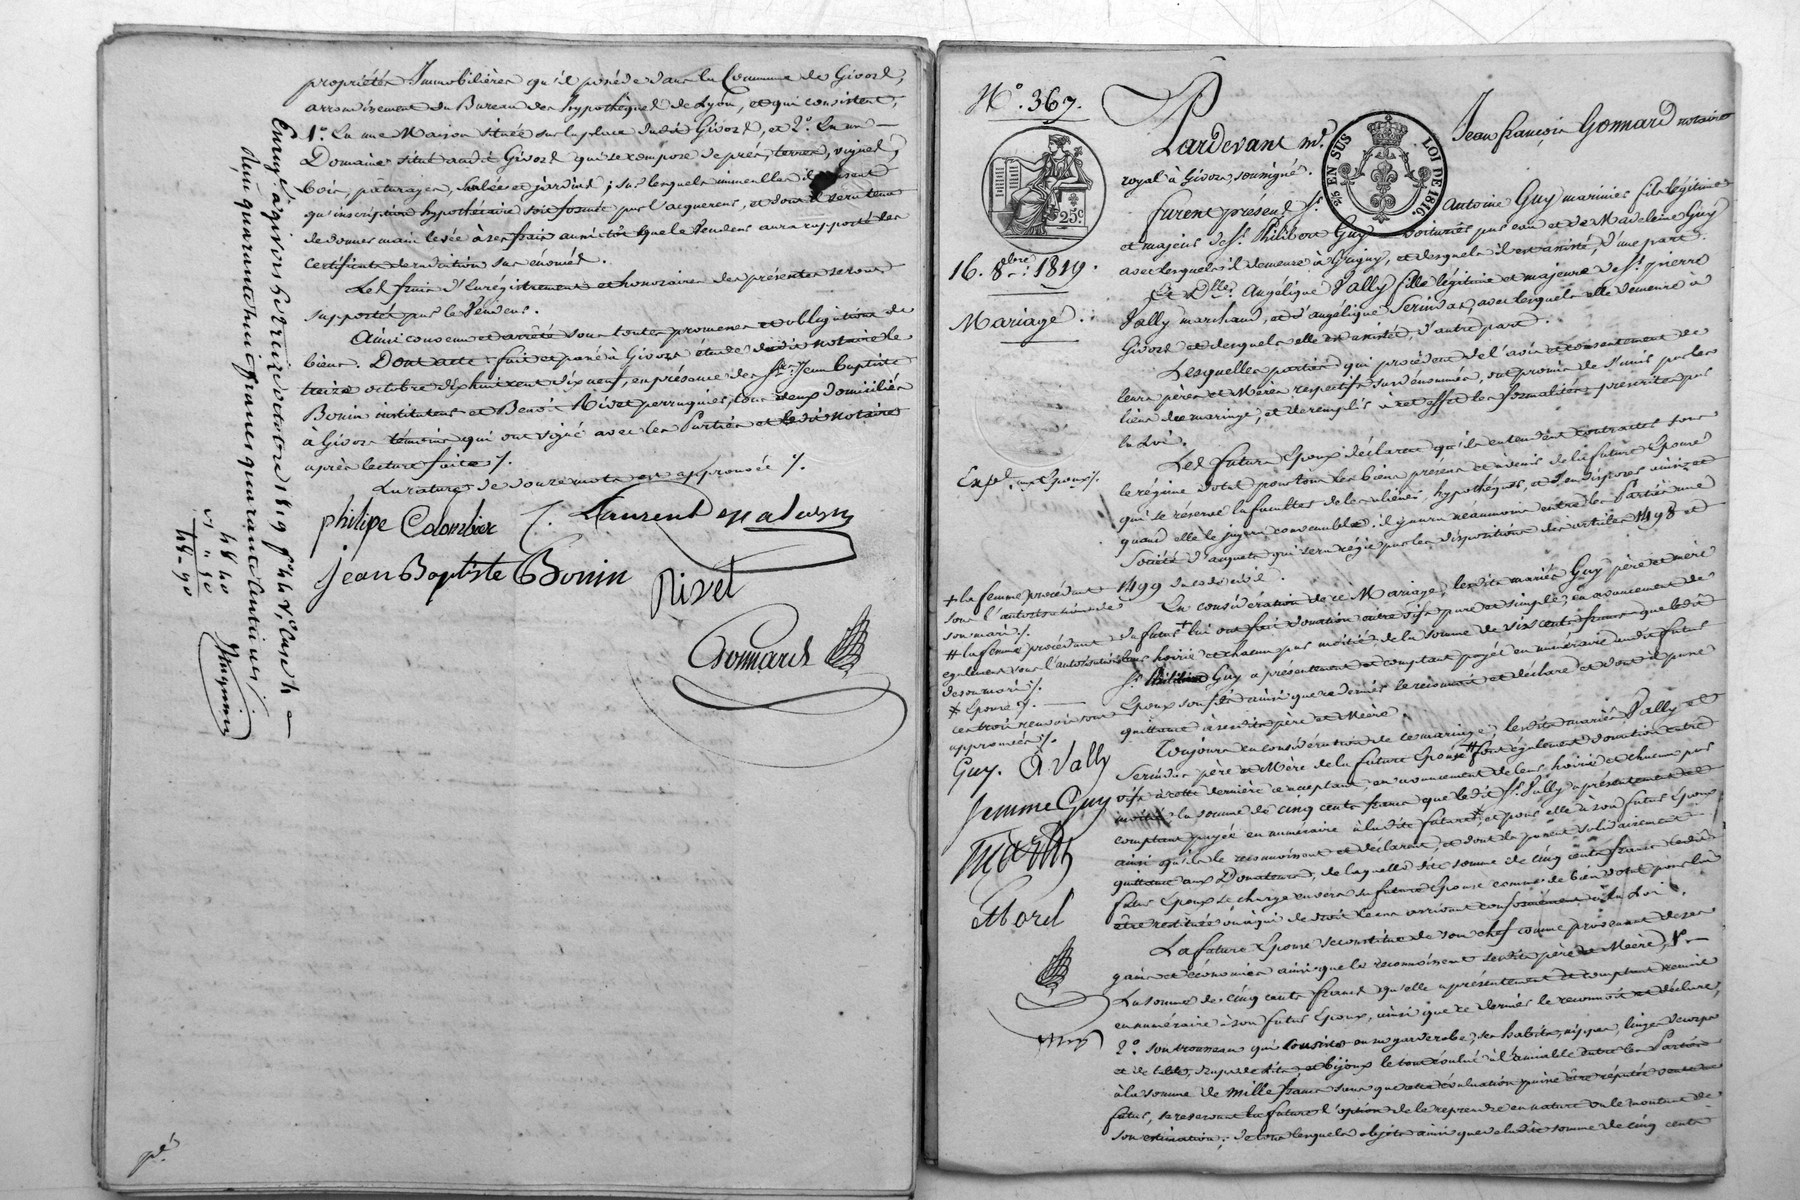 propriétés Immobilières qu'il possède dans la Commune de Givors,
arrondissement du Bureau des hypothèques de Lyon, et qui consistent,
1º. En une Maison située sur la place dudit Givors, et 2º. En un
Domaine situé audit Givors qui se compose de prés, terres, vignes,
bois, pâturages, et jardins; sur lesquels immeubles il consent
qu'inscription hypothécaire soit formée par l'acquereur, et dont il sera tenu
de donner main levée à ses frais aussitôt que le Vendeur aura rapporté les
certificats de radiation sus énoncés.
Les frais d'Enregistrement et honoraires des présentes seront
supportés par le Vendeur.
Ainsi convenu et arrêté sous toutes promesses et obligations de
biens. Dont acte: fait et passé à Givors étude dudit notaire le
treize octobre dix huit cent dix neuf, en présence des Srs. Jean Baptiste
Bonin instituteur et Benoit Rivet perruquier, tous deux domiciliés
à Givors témoins qui ont signé avec les Parties et ledit notaire
après lecture faite %.
La rature de douze mots est approuvée %.
philipe Colombier Laurent
jean Baptiste Bonin Rivet
Gonnard
Enreg. à givors le treize octobre 1819 fº 44 Vº Case 4
reçu quarante huit francs quarante centimes
48 40
pé
Nº. 367.
Pardevant Me. Jean françois Gonnard notaire
EN SUS
LOI DE 1816.
25c
royal à Givors, soussigné.
16. 8bre. 1819.
Mariage
furent présens Sr. Antoine Guy marinier fils légitime
et majeur de Sr. Philibert Guy voiturier par eau et de Madeleine Guy
avec lesquels il demeure à Grigny, et desquels il est assisté, d'une part.
Et Dlle. Angélique Vally fille légitime et majeure de Sr. pierre
Vally marchand, et d'angélique Serindas, avec lesquels elle demeure à
Givors et desquels elle est assistée, d'autre part.
Lesquelles parties qui procèdent de l'avis et consentement de
leurs pères et Mères respectifs susdénommés, ont promis de s'unir par les
liens du mariage, et de remplir à cet effet les formalités prescrites par
la Loi.
Expé. aux Epoux %.
Les futurs Epoux déclarent qu'ils entendent contracter sous
le régime dotal pour tous les biens présens et à venir de la future Epouse
qui se réserve la faculté de les aliéner, hypothéquer, et d'en disposer ainsi et
quand elle le jugera convenable; il y aura néanmoins entre les Parties une
Société d'acquets qui sera régie par les dispositions des articles 1498 et
1499 du code civil.
+ la femme procédant
sous l'autorisation de
son mari %.
# la femme procédant
egalement sous l'autorisation
de son mari %.
* Epouse %.
ces trois renvois sont
approuvés %.
Guy. A Vally
femme Guy
En considération de ce Mariage, lesdits mariés Guy père et mère
du futur + lui ont fait donation entre vifs pure et simple, en avancement de
leur hoirie et chacun par moitié de la somme de six cents francs que ledit
Sr. Guy a présentement et comptant payée en numéraire audit futur
Epoux son fils ainsi que ce dernier le reconnait et déclare et dont il passe
quittance à sesdits père et Mère.
Toujours en considération de ce mariage, lesdits mariés Vally et
Serindas père et Mère de la future Epouse # font également donation entre
vifs à cette dernière acceptant, en avancement de leur hoirie et chacun par
moitié la somme de cinq cents francs que ledit Sr. Vally a présentement et
comptant payée en numéraire à ladite future *, et pour elle à son futur Epoux
ainsi qu'ils le reconnoissent et déclarent, et dont ils passent solidairement
quittance aux Donateurs, de laquelle dite somme de cinq cents francs ledit
futur Epoux se charge envers sa future Epouse comme de bien dotal pour lui
être restituée ou à qui de droit le cas arrivant conformément à la Loi.
La future Epouse se constitue de son chef comme provenant de ses
gains et économies ainsi que le reconnoissent sesdits père et Mère, 1º.
La somme de cinq cents francs qu'elle a présentement et comptant remise
en numéraire à son futur Epoux, ainsi que ce dernier le reconnoit et déclare,
2º. son trousseau qui consiste en sa garderobe, ses habits, nippes, linges de corps
et de table, et bijoux le tout évalué à l'amiable entre les Parties
à la somme de mille francs sans que cette évaluation puisse être réputée vente au
futur, se reservant la future l'option de le reprendre en nature ou le montant de
son estimation; de tous lesquels objets ainsi que de ladite somme de cinq cents